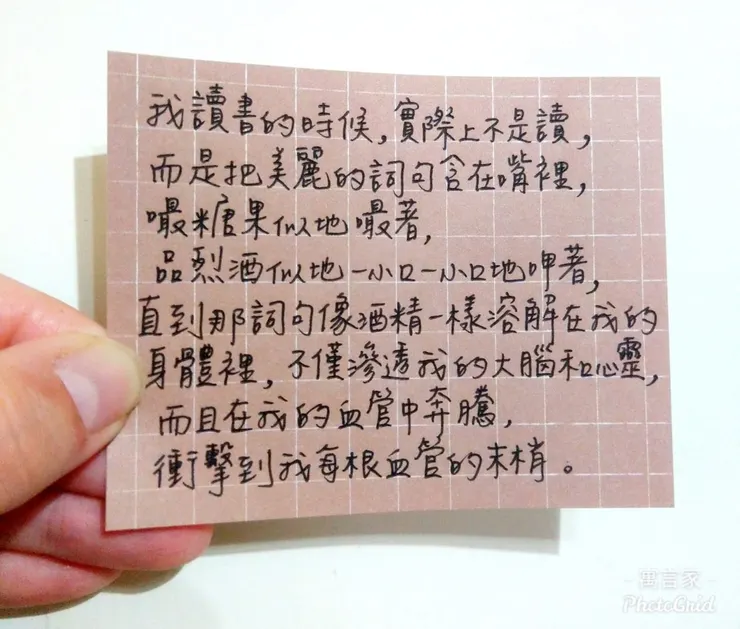 我讀書的時候,實際上不是讀,
而是把美麗的詞句含在嘴裡,
嘬糖果似地嘬著,
品烈酒似地一小口一小口地呷著,
直到那詞句像酒精一樣溶解在我的
身體裡,不僅滲透我的大腦和心靈,
而且在我的血管中奔騰,
衝擊到我每根血管的末梢。
- 寓言家 -
PhotoGrid